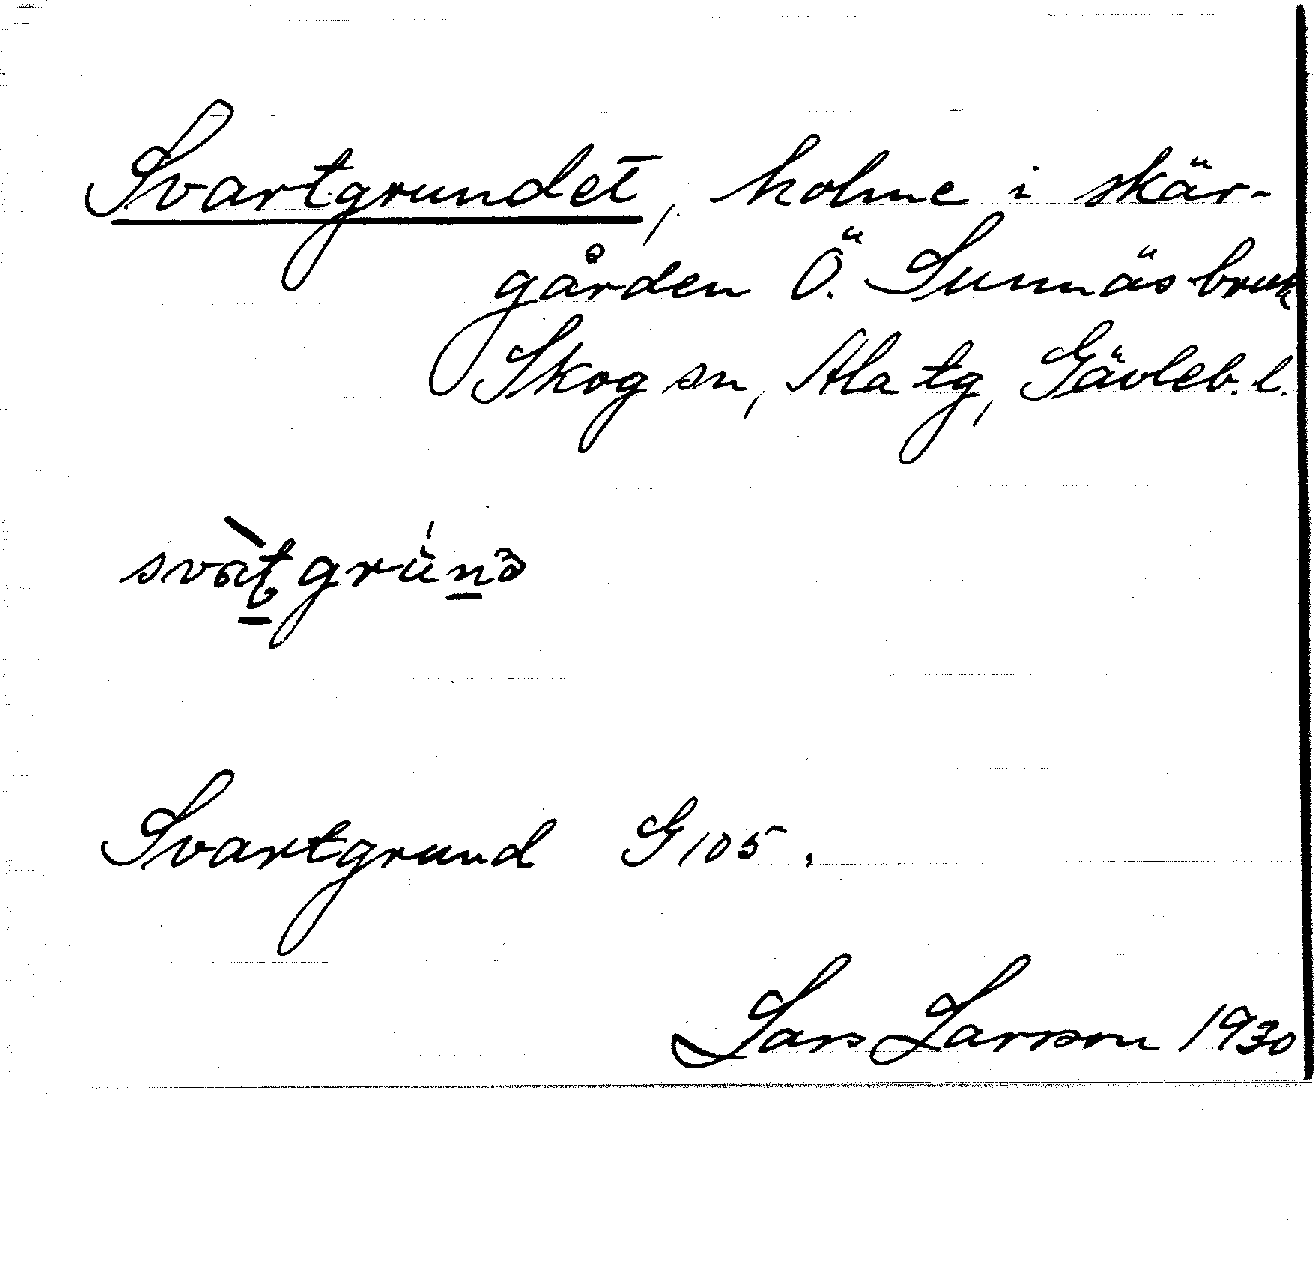 Svartgrundet, holme i skär-
gården Ö. Sunnäsbruk
Skog sn, Ala tg, Gävleb. l.
Svartgrund G 105.
Lars Larsson 1930